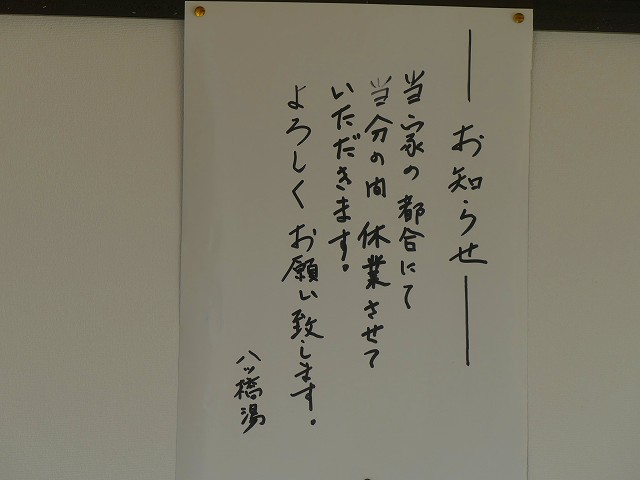 ― お知らせ ―
当家の都合にて
当分の間 休業させて
いただきます。
よろしくお願い致します。
八ッ橋湯